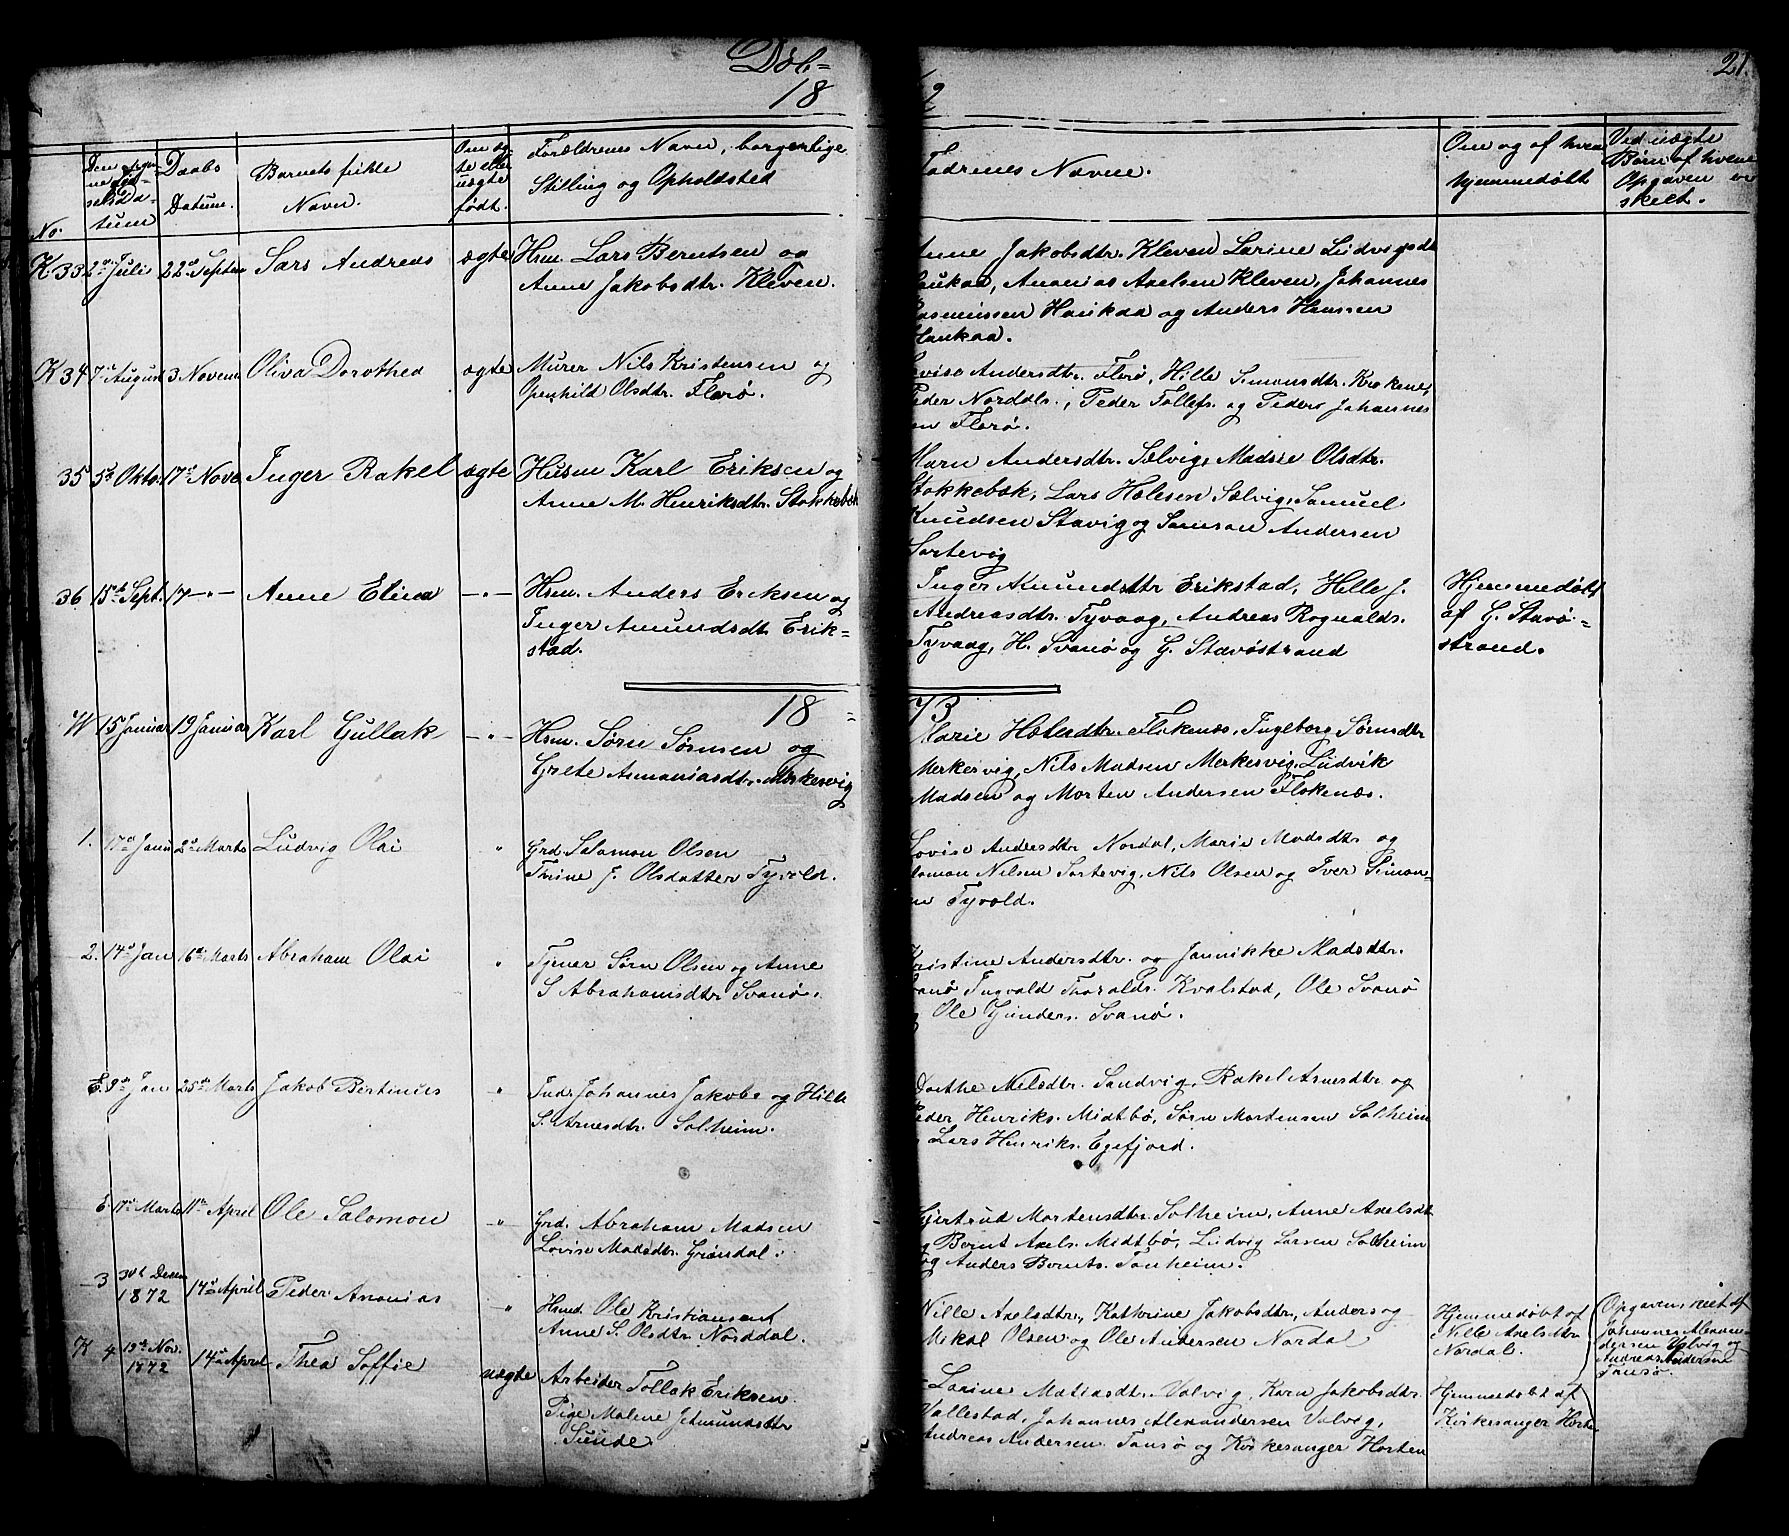 Døb=
18
72
21.
No.
Daabs
Datum.
Barnets fulde
Navn.
Om æg
te eller
uægte
født.
Forældrenes Navn, borgerlige
Stilling og Opholdsted
Fadrenes Navne.
Om og af hvem
hjemmedøbt
Ved uægte
Børn af hvem
Opgaven er
skeet.
K. 33 2den Juli 22de Septem Lars Andreas ægte Hsm. Lars Berntsen og
Anne Jakobsdtr. Kleven.
Anne Jakobsdtr. Kleven, Larine Ludvigsdtr
Haukaa, Ananias Axelsen Kleven, Johannes
Rasmussen Haukaa og Anders Hanssen
Haukaa.
K 34 7de August 3 Novem Oliva Dorothea ægte Murer Nils Kristensen og
Openhild Olsdtr. Florø.
Lovise Andersdtr. Florø, Hille Simonsdtr. Krokene,
Peder Nordals., Peder Tollefs. og Peder Johannes
en Florø.
35 5te Okto. 17de Nove Inger Rakel ægte Husm Karl Eriksen og
Anne M. Henriksdtr. Stokkebæk
Maren Andersdtr. Sælvig, Madsie Olsdtr.
Stokkebæk, Lars Helesen Sælvig, Samuel
Knudsen Stavig og Samson Andersen
Sortevig
36 15de Sept. 17 -"- Anne Elina -"- Hsm. Anders Eriksen og
Inger Amundsdt. Erik=
stad.
Inger Amundsdtr Erikstad, Hille J.
Andreasdtr. Tyvaag, Andreas Rognalds.
Tyvaag, H. Svanø og G. Stavøstrand
Hjemmedøbt
af G. Stavø=
strand.
18 = 73
15 Januar 19 Januar Karl Gullak -"- Hsm. Søren Sørensen og
Grete Ananiasdtr. Merkesvig
Marie Helesdtr. Flokenæs, Ingeborg Sørensdtr
Merkesvig, Nils Madsen Merkesvig, Ludvik
Madsen og Morten Andersen Flokenæs.
1. 17de Janu 2den Marts Ludvig Olai " Grd. Salomon Olsen
Trine J. Olsdatter Tyvold.
Lovise Andersdtr Nordal, Marie Madsdtr og
Salomon Nilsen Sortevig, Nils Olsen og Iver Simon=
en Tyvold.
2. 14de Jan 16de Marts Abraham Olai " Tjener Søren Olsen og Anne
S Abrahamsdtr Svanø.
Kristine Andersdtr. og Jannikke Madsdtr.
Svanø Ingvald Thoralds. Kvalstad, Ole Svanø
og Ole Gunders. Svanø.
E. 9de Jan 25de Marts Jakob Bertinius " Inds. Johannes Jakobs. og Hille
S. Arnesdtr. Solheim.
Dorthe Nelsdtr. Sandvig, Rakel Arnesdtr og
Peder Henriks. Midtbø, Søren Mortensen Solheim
Lars Henriks. Egefjord.
E. 17de Marts 11te April Ole Salomon " Grd. Abraham Madsen
Lovise Madsdtr. Grøndal.
Gjertrud Mortensdtr. Solheim, Anne Axelsdt
og Bernt Axels. Midtbø, Ludvig Larsen Solheim
og Anders Bernts. Tonheim.
3 30te Decem
1872 14de April Peder Ananias " Husmd. Ole Kristiansen
Anne S. Olsdtr. Norddal.
Nille Axelsdtr., Kathrine Jakobsdtr., Anders og
Mikal Olsen og Ole Andersen Nordal
Hjemmedøbt af
Nille Axelsdtr
Nordal.
Opgaven skeet af
Johannes Alexan=
dersen Valvig og
Andreas Andersen
Tansø.
K 4 19de Nov.
1872 14de April Thea Soffie uægte Arbeider Tollak Eriksen.
Pige Malene Amundsdtr
Sunde
Larine Matiasdtr. Valvig, Karn Jakobsdtr.
Vallestad, Johannes Alexandersen Valvig,
Andreas Andersen Tansø og Kirkesanger Horten
Hjemmedøbt af
Kirkesanger Horten